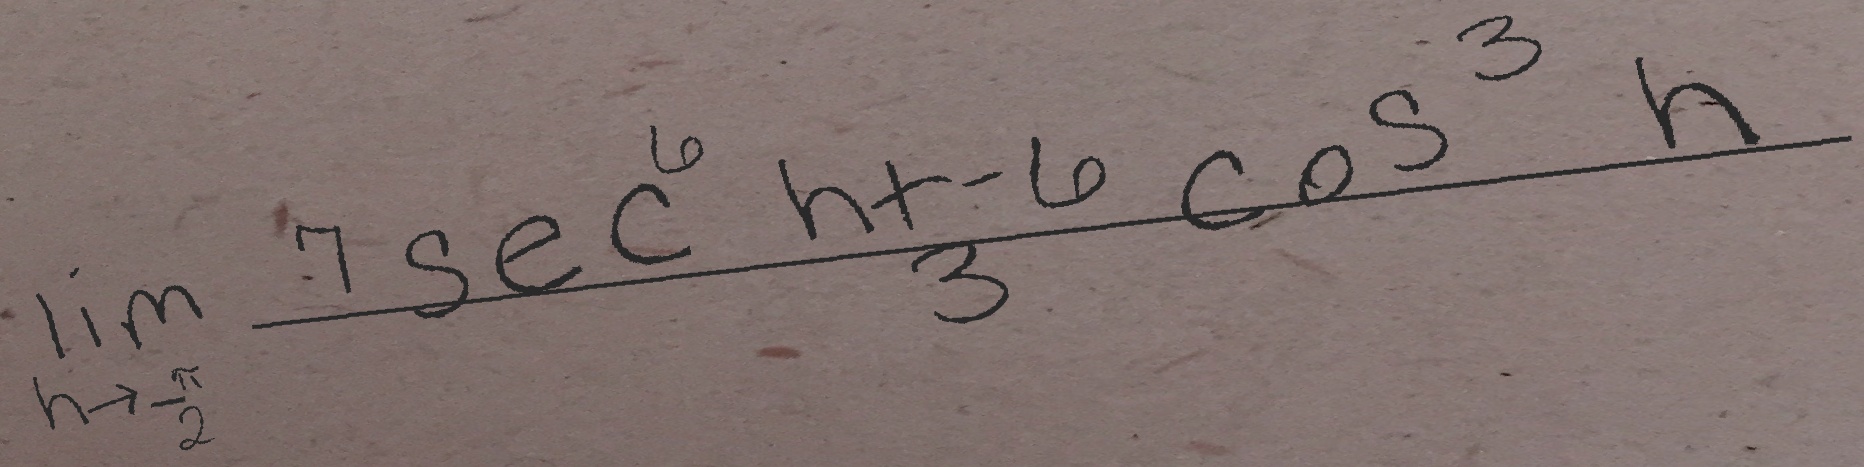 \lim_{h \to \frac{\pi}{2}} \frac{7 \sec^{6} h + -6 \cos^{3} h}{3}